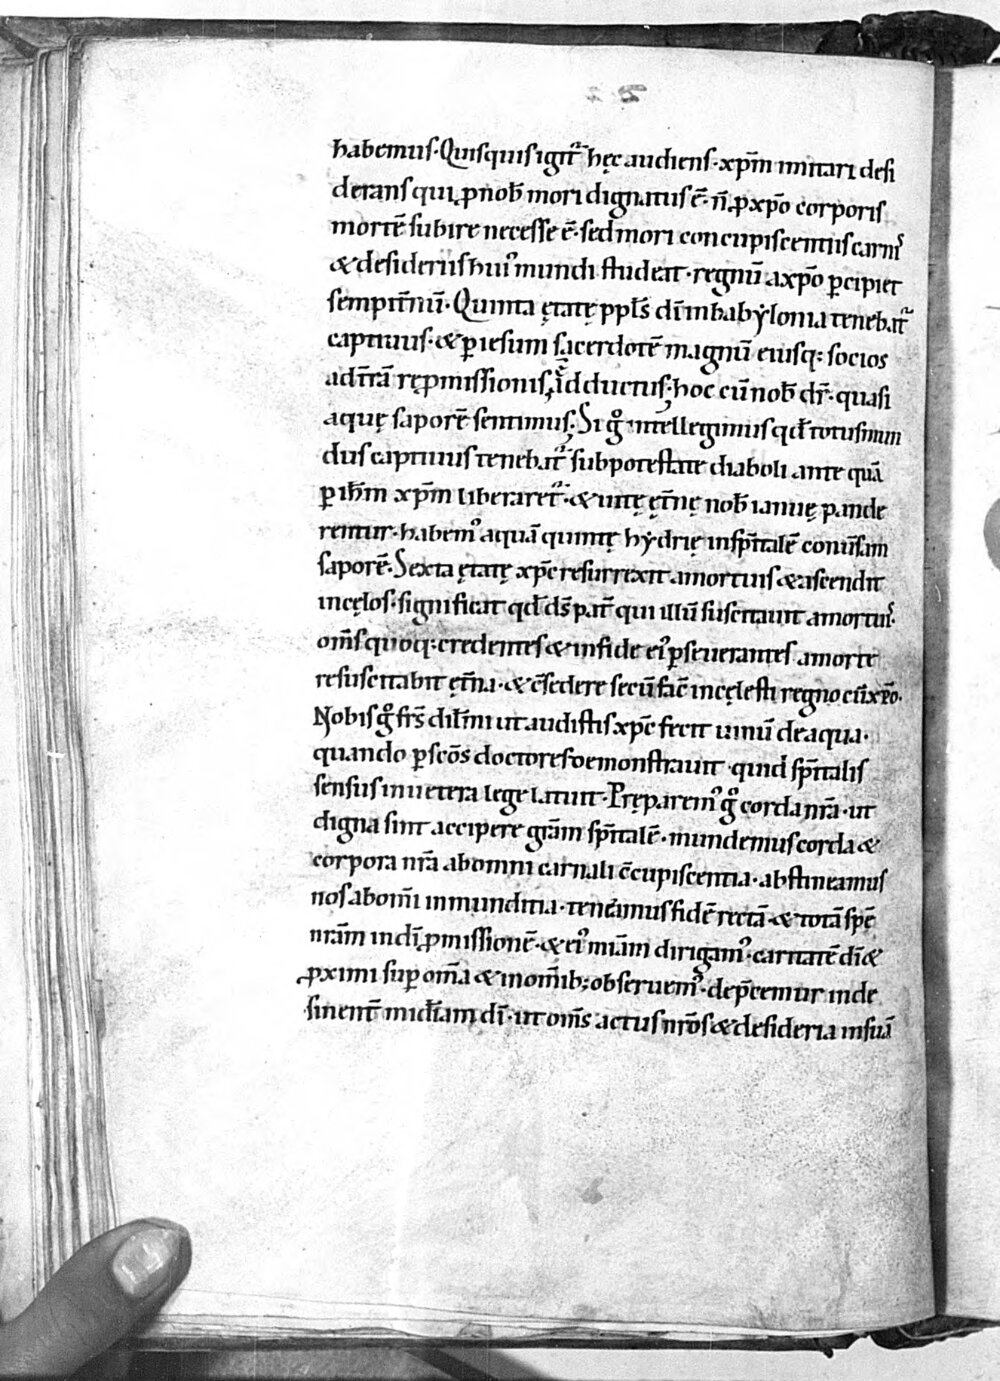 habemus· Quisquis igit̃ hęc audiens· xp̃m imitari desi
derans qui ꝓ nob̃ mori dignatus ẽ· ñ ꝓ xp̃o corporis
mortẽ subire necesse ẽ· sed mori concupiscentiis carnis
& desideriis huiꝰ mundi studeat· regnũ a xp̃o ꝑcipiet
sempit̃nũ· Quinta ętatę ppl̃s dĩ in babẏlonia teneba&#771;t
captiuus· & ꝑ iesum sacerdotẽ magnũ eiusq: socios
ad t̃rã rep̱missionis ductus; hoc cũ nob̃ dr̃· quasi
aquę saporẽ sentimus; Si g̊ intellegimus qd̃ totus mun
dus captiuus tenebat̃ sub potestate diaboli ante quã
ꝑ ih̃m xp̃m liberaret̃· & uitę ęt̃nę nob̃ ianuę pande
rentur· habemꝰ aquã quintę hẏdrię in sp̃italẽ conũsam
saporẽ· Sexta ętatę xp̃c resurrexit a mortuis & ascendit
in cęlos· significat qd̃ ds̃ pat̃ qui illũ suscitauit a mortuis·
om̃s quoq: credentes & in fide eiꝰ ꝑseuerantes a morte
resuscitabit ęt̃na· & c̃sedere secũ fac̃ in cęlesti regno cũ xp̃o·
Nobis g̊ fr̃s dil̃mi ut audistis xp̃c fecit uinũ de aqua·
quando ꝑ sc̃os doctores demonstrauit quid sp̃italis
sensus in uetera lege latuit· Pręparemꝰ g̊ corda nr̃a· ut
digna sint accipere gr̃am sp̃italẽ· mundemus corda &
corpora nr̃a ab omni carnali c̃cupiscentia· abstineamus
nos ab om̃i inmunditia· teneamus fidẽ rectã· & totã spẽ
nr̃am in dĩ ꝓmissionẽ· & eiꝰ miãm dirigamꝰ· caritatẽ dĩ &
ꝓximi suꝑ om̃a & in om̃ib; obseruemꝰ· dep̃cemur inde
sinent̃ mid̃iam dĩ· ut om̃s actus nr̃os & desideria in suã